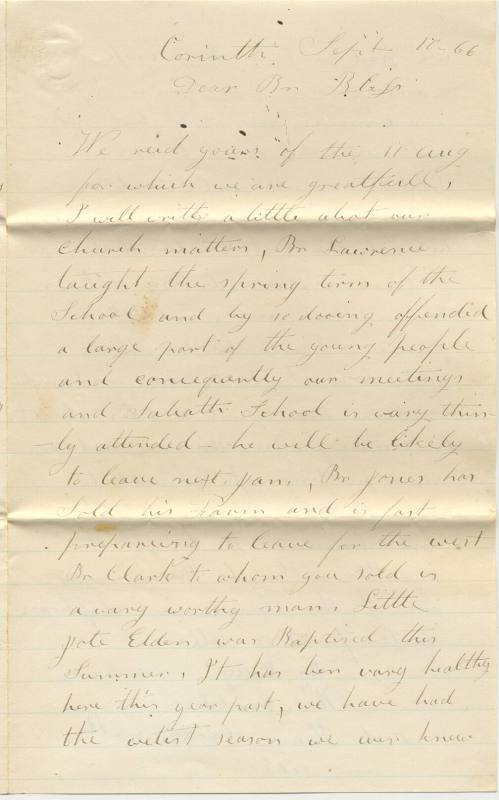 Corinth Sept 17 - 66
Dear Br Bliss
We recd yours of the 11 Aug
for which we are greatfull,
I will write a little abot our
church matters, Br Lawrence
taught the spring term of the
School and by so dooing offended
a large part of the young people
and consequently our meetings
and Sabath School is vary thin
-ly attended - he will be likely
to leave next Jan, Br Jones has
Sold his Farm and is fast
prepareing to leave for the west
Br Clark to whom you sold is
a vary worthy man. Little
Elden was Baptised this
Summer, It has ben vary healthy
here this year past, we have had
the wetist season we ever knew